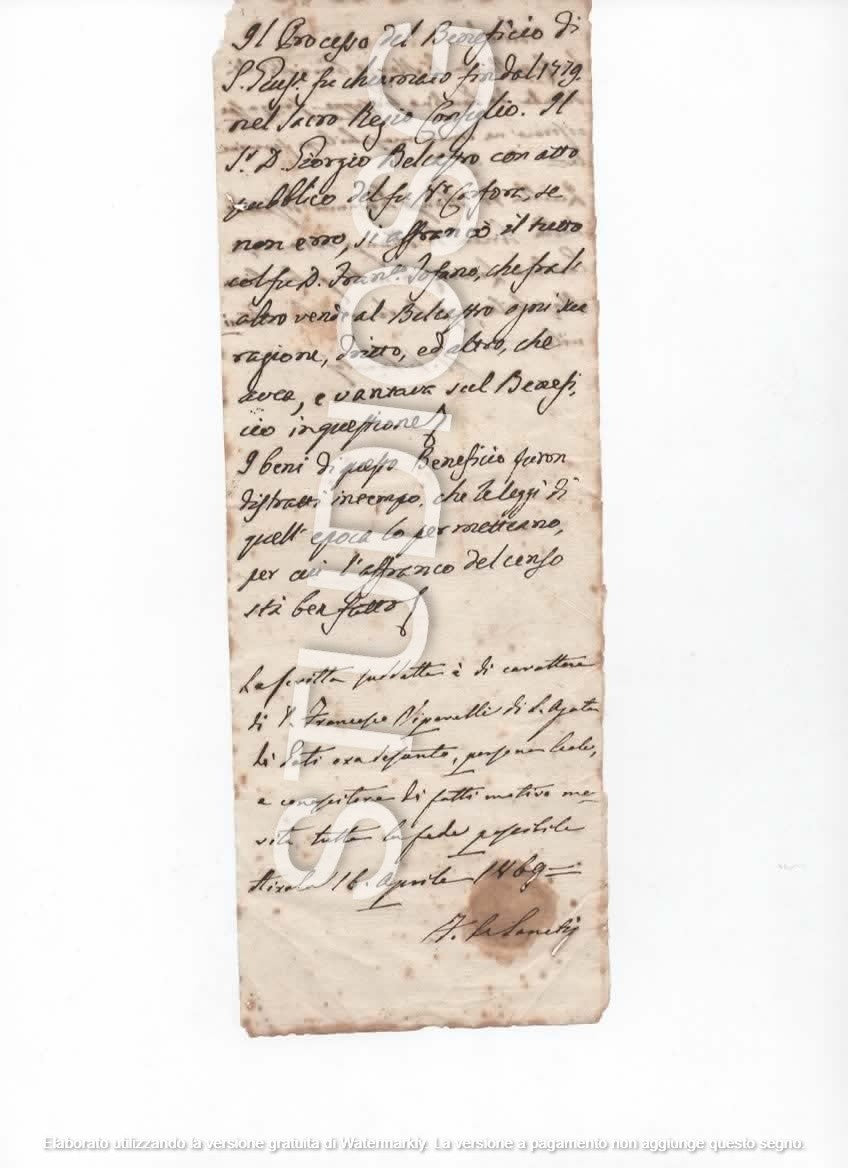 Il Processo del Beneficio di
S. Gius.e fu chiamato fin dal 1779
nel Sacro Regio Consiglio. Il
S.r D. Giorgio Belcastro con atto
pubblico del fu N.r Carfora, se
non erro, si affrancò il tutto
col fu D. Fran.co Tofano, che fral
altro vendè al Belcastro ogni sua
ragione, dritto, ed altro, che
avea, e vantava sul Benefi,
cio in questione
I beni di questo Beneficio furon
distratti in tempo, che le leggi di
quell'epoca lo permetteano,
per cui l'affranco del censo
sta ben fatto
La scritta suddetta è di carattere
di D. Francesco di S. Agata
di Goti ora defunto, persona leale,
e conoscitore di fatti motivo me-
rita tutta la fede possibile
Airola 16. Aprile 1869=
STUDIOSG
Elaborato utilizzando la versione gratuita di Watermarkly. La versione a pagamento non aggiunge questo segno.